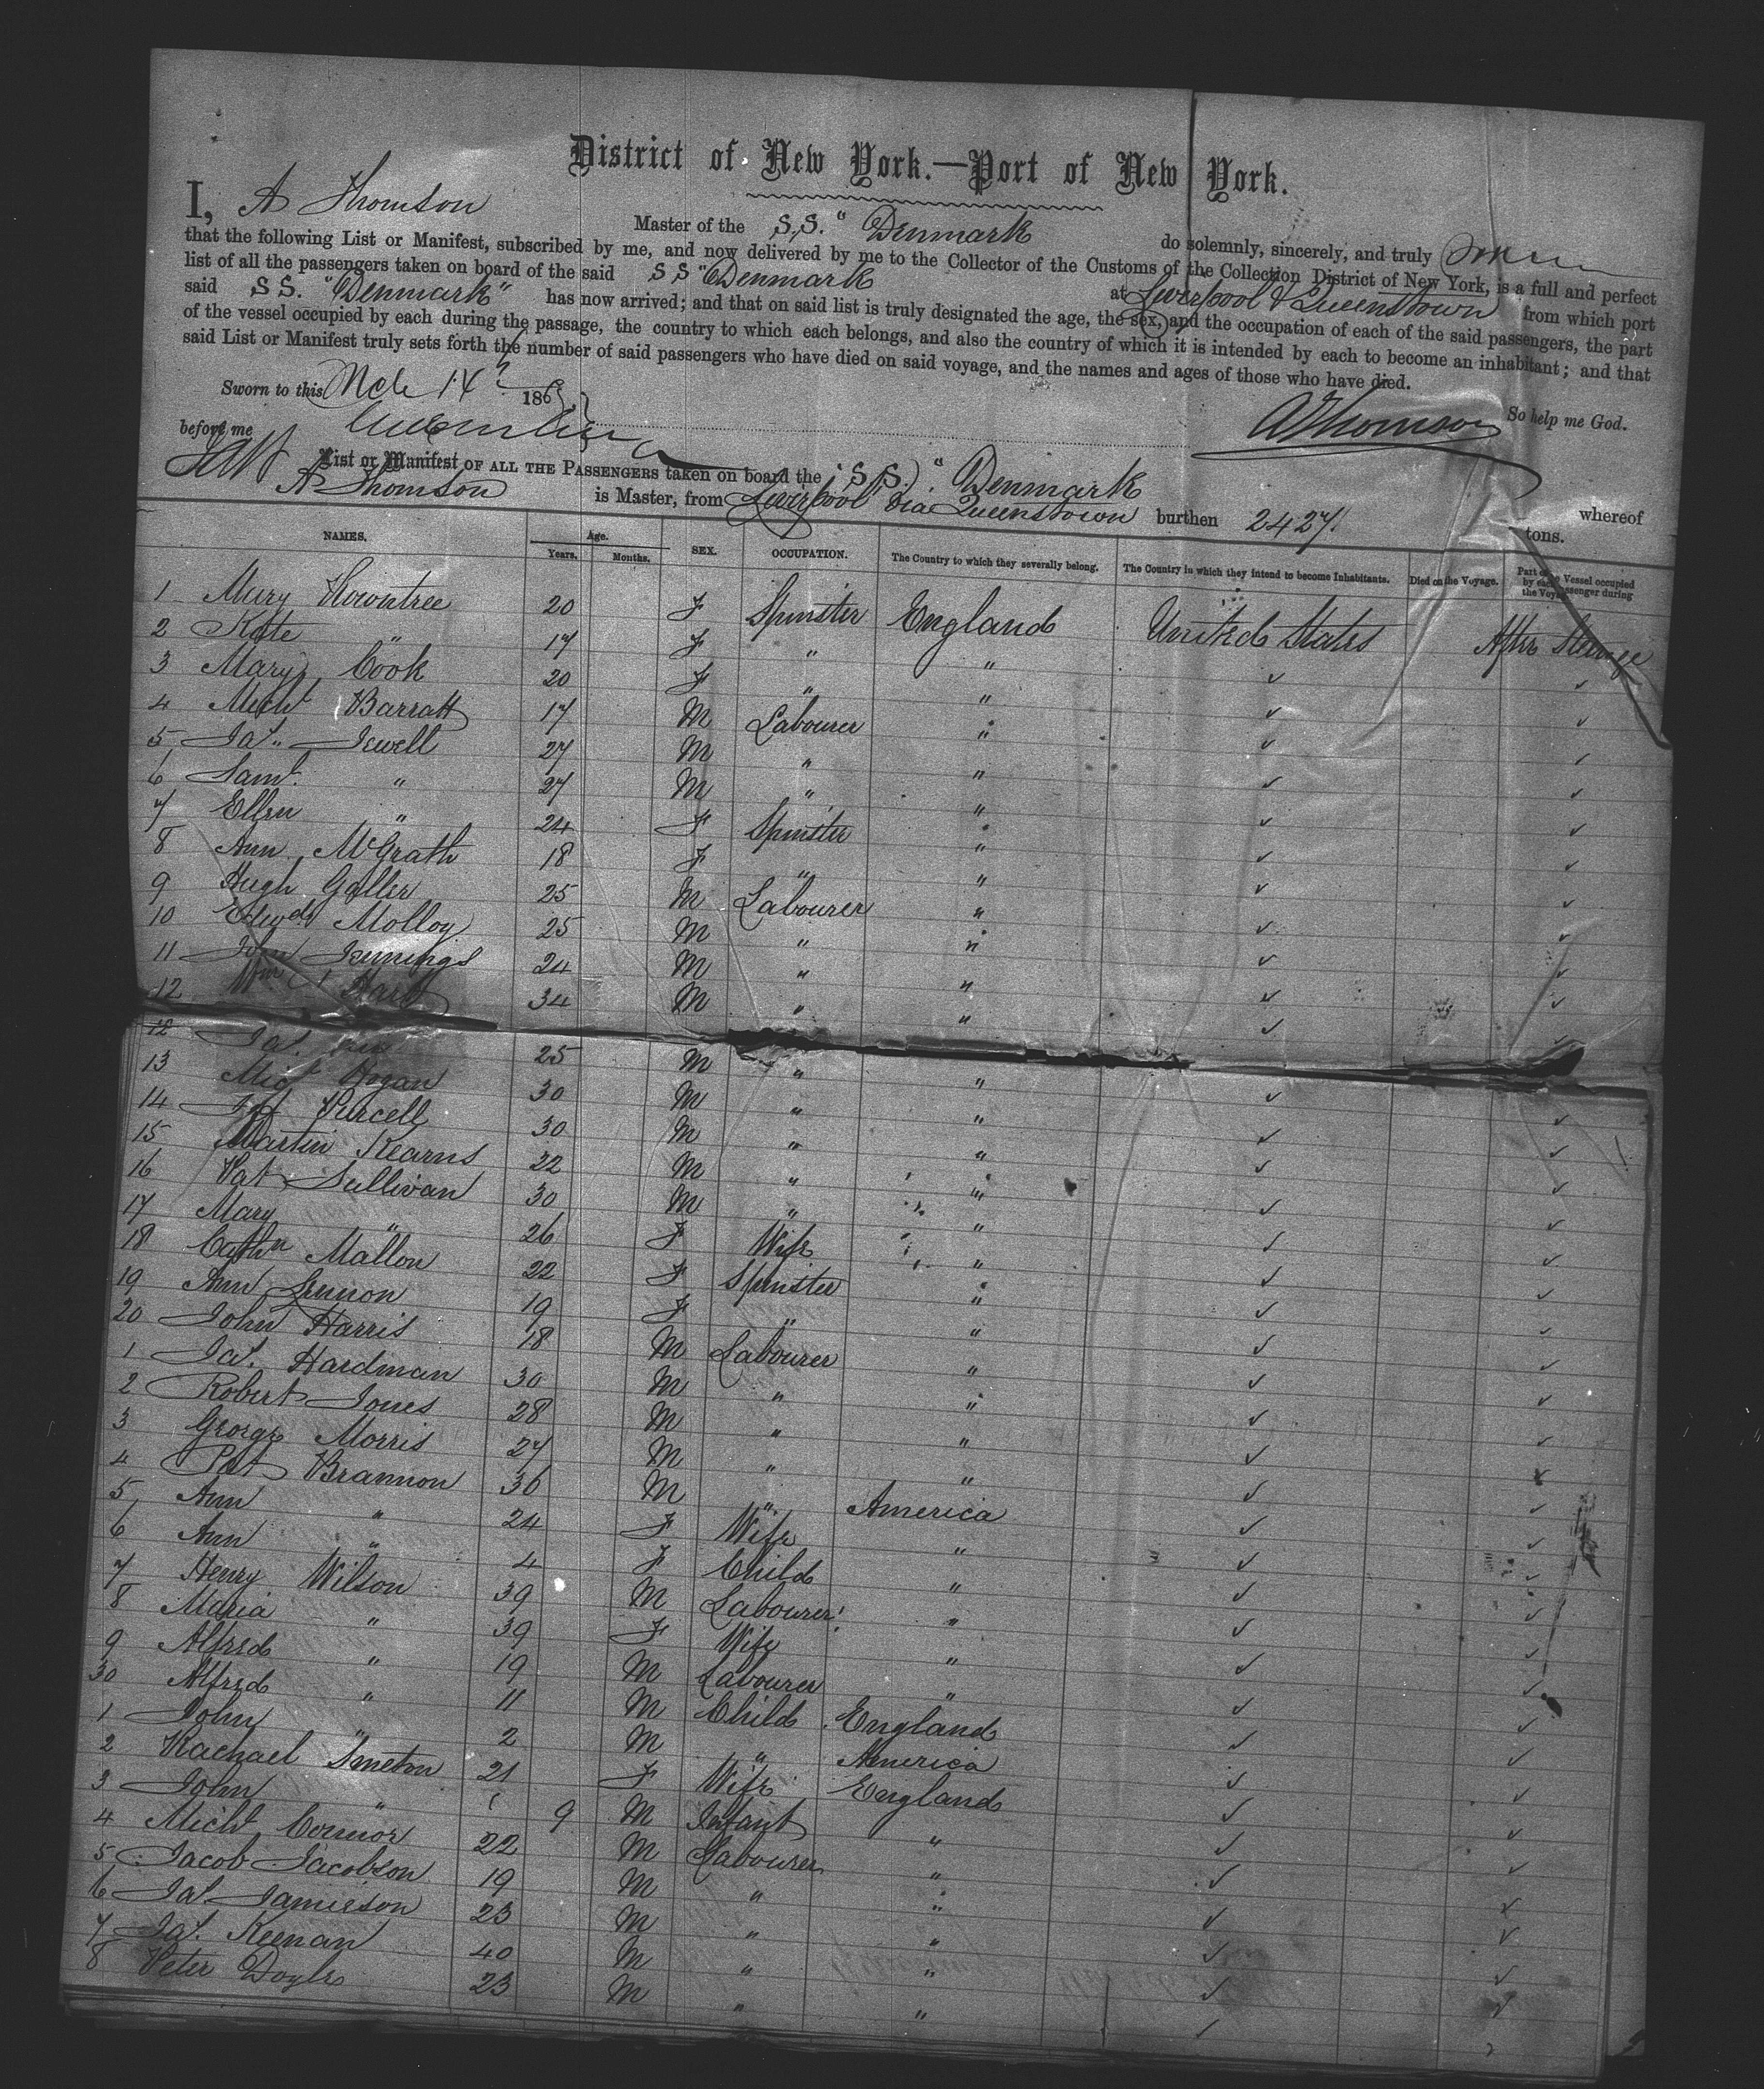 District of New York.—Port of New York.
I, A Thomson Master of the S.S. "Denmark do solemnly, sincerely, and truly
that the following List or Manifest, subscribed by me, and now delivered by me to the Collector of the Customs of the Collection District of New York, is a full and perfect
list of all the passengers taken on board of the said S S "Denmark at Liverpool & Queenstown from which port
said S S. "Denmark" has now arrived; and that on said list is truly designated the age, the sex, and the occupation of each of the said passengers, the part
of the vessel occupied by each during the passage, the country to which each belongs, and also the country of which it is intended by each to become an inhabitant; and that
said List or Manifest truly sets forth the number of said passengers who have died on said voyage, and the names and ages of those who have died.
Sworn to this Mch 14th 186 So help me God.
before me AThomson
List or Manifest OF ALL THE PASSENGERS taken on board the S.S. "Denmark whereof
A Thomson is Master, from Liverpool via Queenstown burthen 2427 tons.
NAMES. Age. Years. Months. SEX. OCCUPATION. The Country to which they severally belong. The Country in which they intend to become Inhabitants. Died on the Voyage. Part of Vessel occupied by each Passenger during the Voyage
1 Mary Rowntree 20 F Spinster England United States After Steerage
2 Kate " 17 F " " ✓ ✓
3 Mary Cook 20 F " " ✓ ✓
4 Michl Barratt 17 M Labourer " ✓ ✓
5 Jas. Jewell 27 M " " ✓ ✓
6 Saml. " 27 M " " ✓ ✓
7 Ellen " 24 F Spinster " ✓ ✓
8 Ann McGrath 18 F " " ✓ ✓
9 Hugh Galler 25 M Labourer " ✓ ✓
10 Edwd Molloy 25 M " " ✓ ✓
11 John Jennings 24 M " " ✓ ✓
12 Wm Hart 34 M " " ✓ ✓
12 Jas. 25 M " " ✓ ✓
13 Michl Hogan 30 M " " ✓ ✓
14 Purcell 30 M " " ✓ ✓
15 Martin Kearns 22 M " " ✓ ✓
16 Pat Sullivan 30 M " " ✓ ✓
17 Mary " 26 F Wife " ✓ ✓
18 Cathn Mallon 22 F Spinster " ✓ ✓
19 Ann Lennon 19 F " " ✓ ✓
20 John Harris 18 M Labourer " ✓ ✓
1 Jas. Hardman 30 M " " ✓ ✓
2 Robert Jones 28 M " " ✓ ✓
3 George Morris 27 M " " ✓ ✓
4 Pat Brannon 36 M " America ✓ ✓
5 Ann " 24 F Wife " ✓ ✓
6 Ann " 4 F Child " ✓ ✓
7 Henry Wilson 39 M Labourer " ✓ ✓
8 Maria " 39 F Wife " ✓ ✓
9 Alfred " 19 M Labourer " ✓ ✓
30 Alfred " 11 M Child England ✓ ✓
1 John " 2 M " America ✓ ✓
2 Rachael Smeton 21 F Wife England ✓ ✓
3 John " 9 M Infant " ✓ ✓
4 Michl Connor 22 M Labourer " ✓ ✓
5 Jacob Jacobson 19 M " " ✓ ✓
6 Jas. Jamieson 23 M " " ✓ ✓
7 Jas. Keenan 40 M " " ✓ ✓
8 Peter Doyle 23 M " " ✓